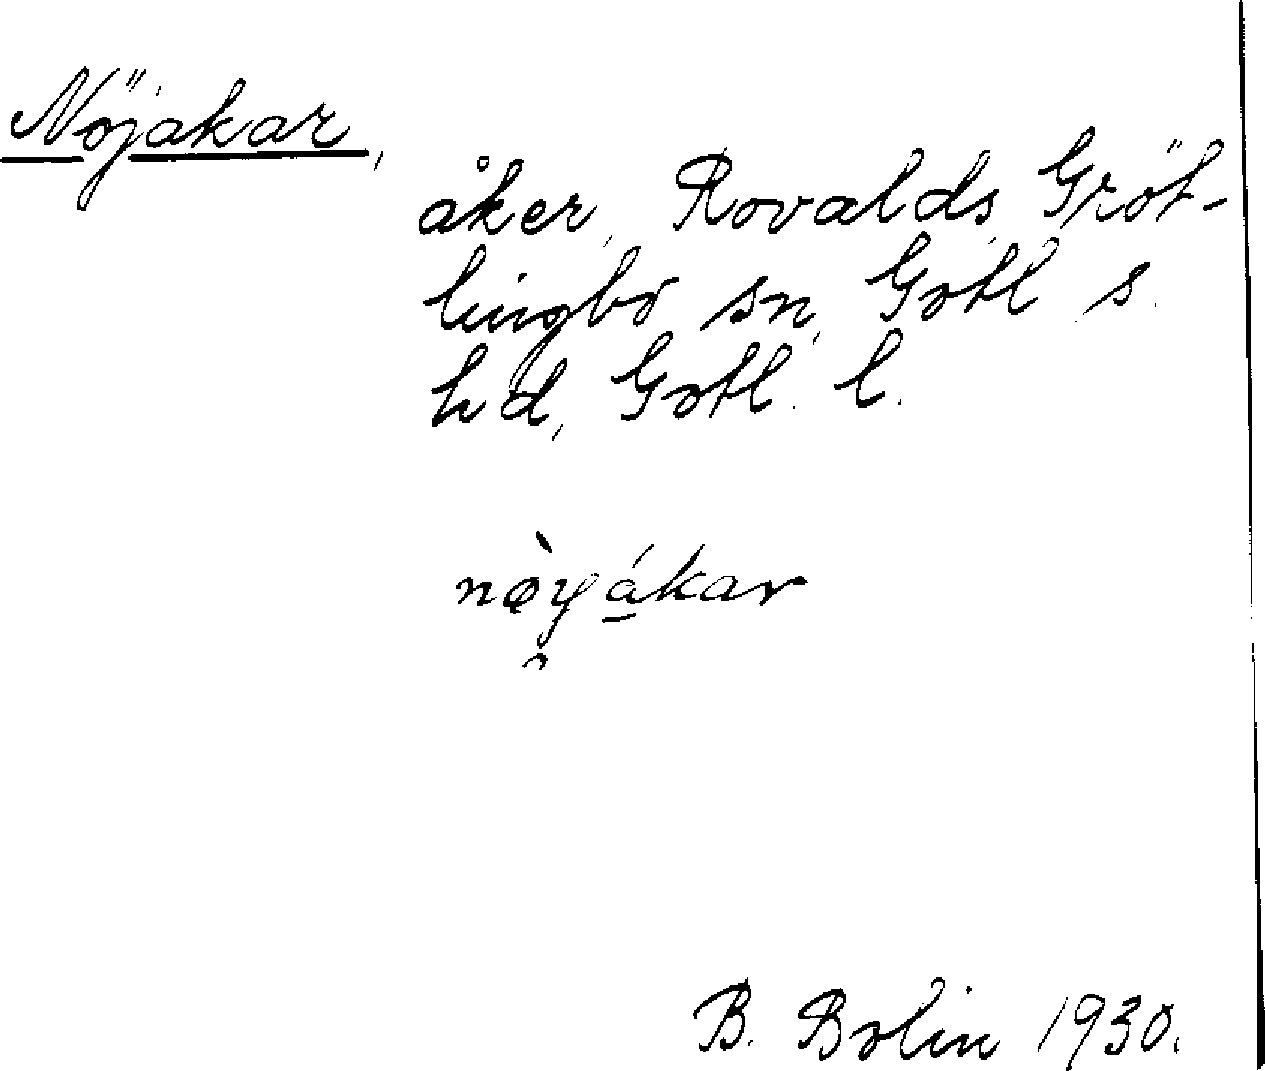 Nöjakar,
åker, Rovalds, Gröt-
lingbo sn, Gotl s.
hd, Gotl. l.
nø̀y̯á̱kar
B. Bolin 1930.